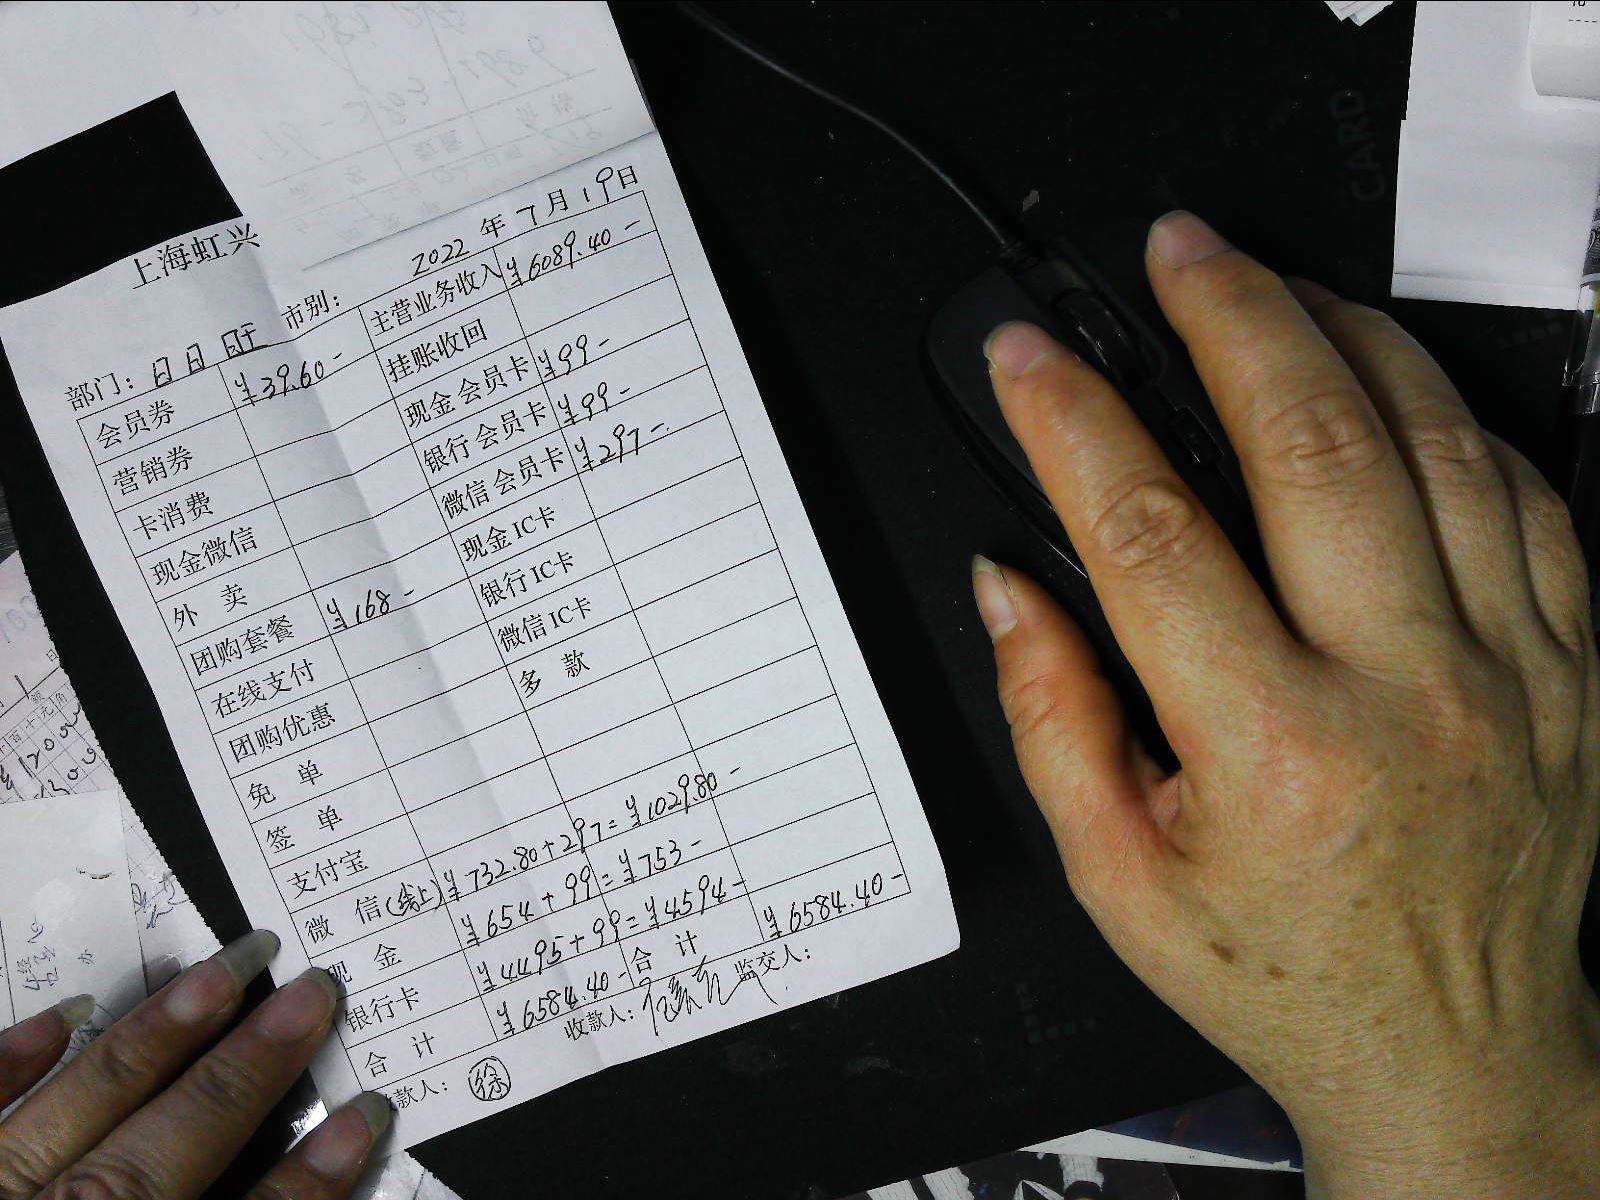 上海虹兴
2022 年 7 月 19 日
部门：日日 市别：
会员券 ¥39.60- 主营业务收入 ¥6089.40-
营销券 挂账收回
卡消费 现金会员卡 ¥99-
现金微信 银行会员卡 ¥99-
外 卖 微信会员卡 ¥297-
团购套餐 ¥168- 现金IC卡
在线支付 银行IC卡
团购优惠 微信IC卡
免 单 多 款
签 单
支付宝
微 信(线上) ¥732.80+297=¥1029.80-
现 金 ¥654+99=¥753-
银行卡 ¥4495+99=¥4594-
合 计 ¥6584.40- 合 计 ¥6584.40-
款人： 徐 收款人： 监交人：
CARD